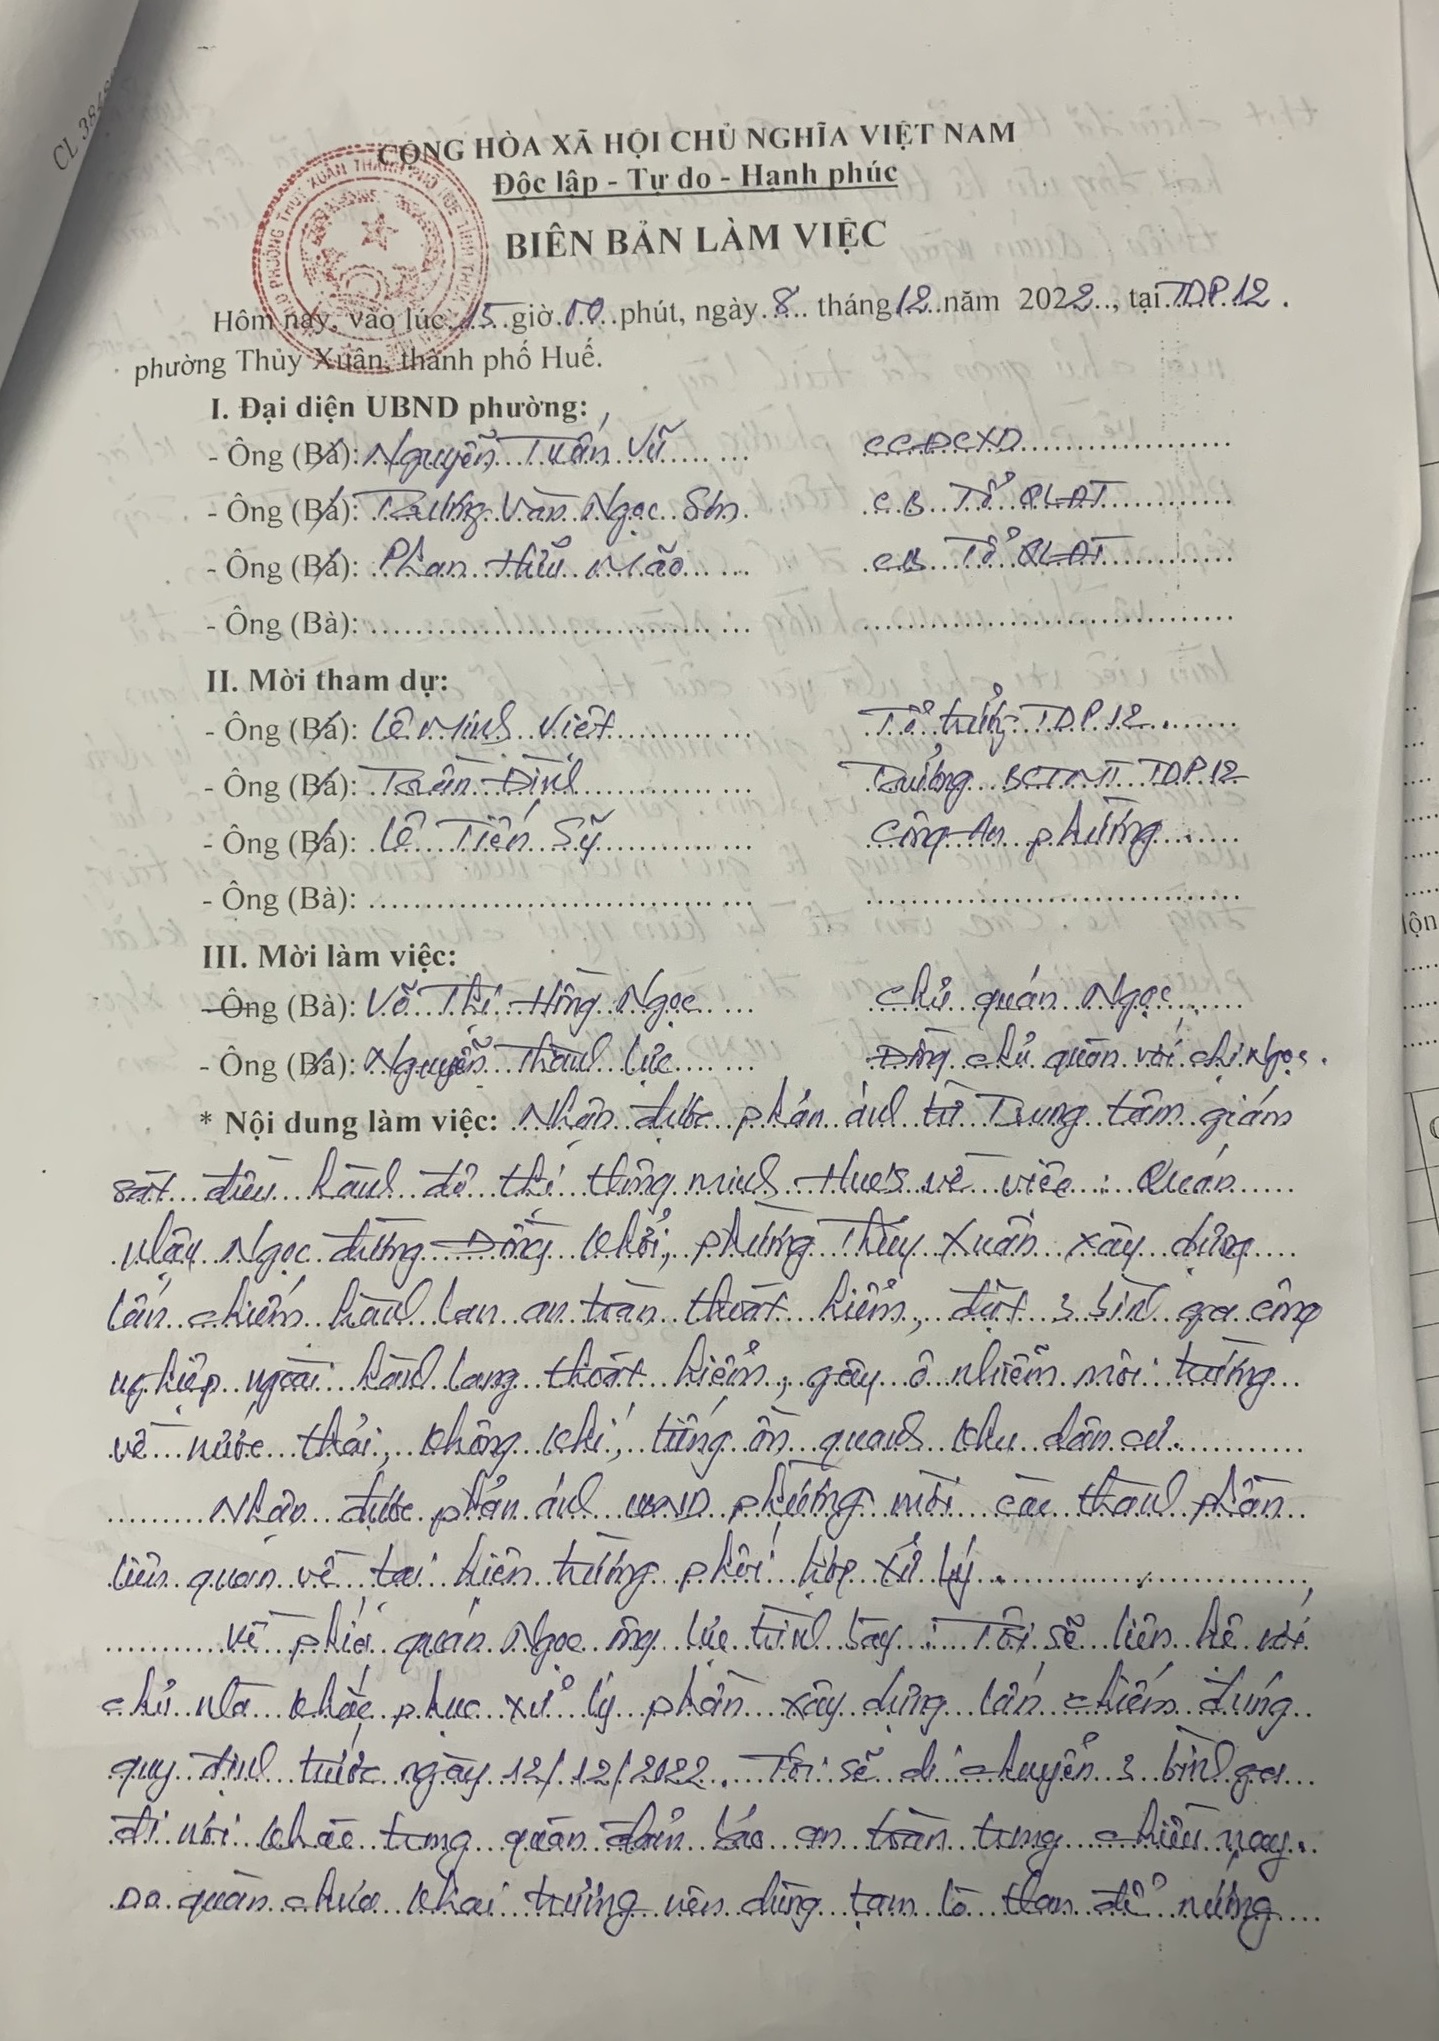 CL 384
CỘNG HÒA XÃ HỘI CHỦ NGHĨA VIỆT NAM
Độc lập - Tự do - Hạnh phúc
BIÊN BẢN LÀM VIỆC
Hôm nay, vào lúc 15 giờ 00 phút, ngày 8 tháng 12 năm 2022, tại TDP 12.
phường Thủy Xuân, thành phố Huế.
I. Đại diện UBND phường:
- Ông (Bà): Nguyễn Tuấn Vũ CCĐCXD
- Ông (Bà): Trương Văn Ngọc Sơn CB Tổ QLĐT
- Ông (Bà): Phan Hữu Mão CB Tổ QLĐT
- Ông (Bà):
II. Mời tham dự:
- Ông (Bà): Lê Minh Việt Tổ trưởng TDP 12
- Ông (Bà): Trần Định Trưởng BCTMT TDP 12
- Ông (Bà): Lê Tiến Sỹ Công An phường
- Ông (Bà):
III. Mời làm việc:
- Ông (Bà): Võ Thị Hồng Ngọc Chủ quán Ngọc
- Ông (Bà): Nguyễn Thành Lực Đồng chủ quán với chị Ngọc.
* Nội dung làm việc: Nhận được phản ánh từ Trung tâm giám
sát điều hành đô thị thông minh HueS về việc: Quán
nhậu Ngọc đường Đồng Khởi, phường Thủy Xuân xây dựng
lấn chiếm hành lan an toàn thoát hiểm, đặt 3 bình ga công
nghiệp ngoài hành lang thoát hiểm, gây ô nhiễm môi trường
về nước thải, không khí, tiếng ồn quanh khu dân cư.
Nhận được phản ánh UBND phường mời các thành phần
liên quan về tại hiện trường phối hợp xử lý.
Về phía quán Ngọc ông Lực trình bày: Tôi sẽ liên hệ với
chủ nhà khắc phục xử lý phần xây dựng lấn chiếm đúng
quy định trước ngày 12/12/2022. Tôi sẽ di chuyển 3 bình ga
đi nơi khác trong quán đảm bảo an toàn trong chiều nay.
Do quán chưa khai trương nên dùng tạm lò than để nướng
lộn